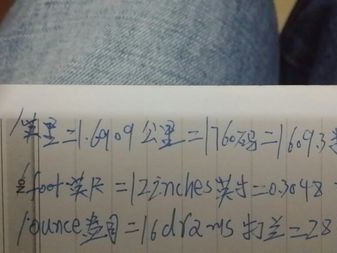 1英里=1.6909公里=1760码=1609.3
1foot英尺=12inches英寸=0.3048
1ounce盎司=16drams打兰=28